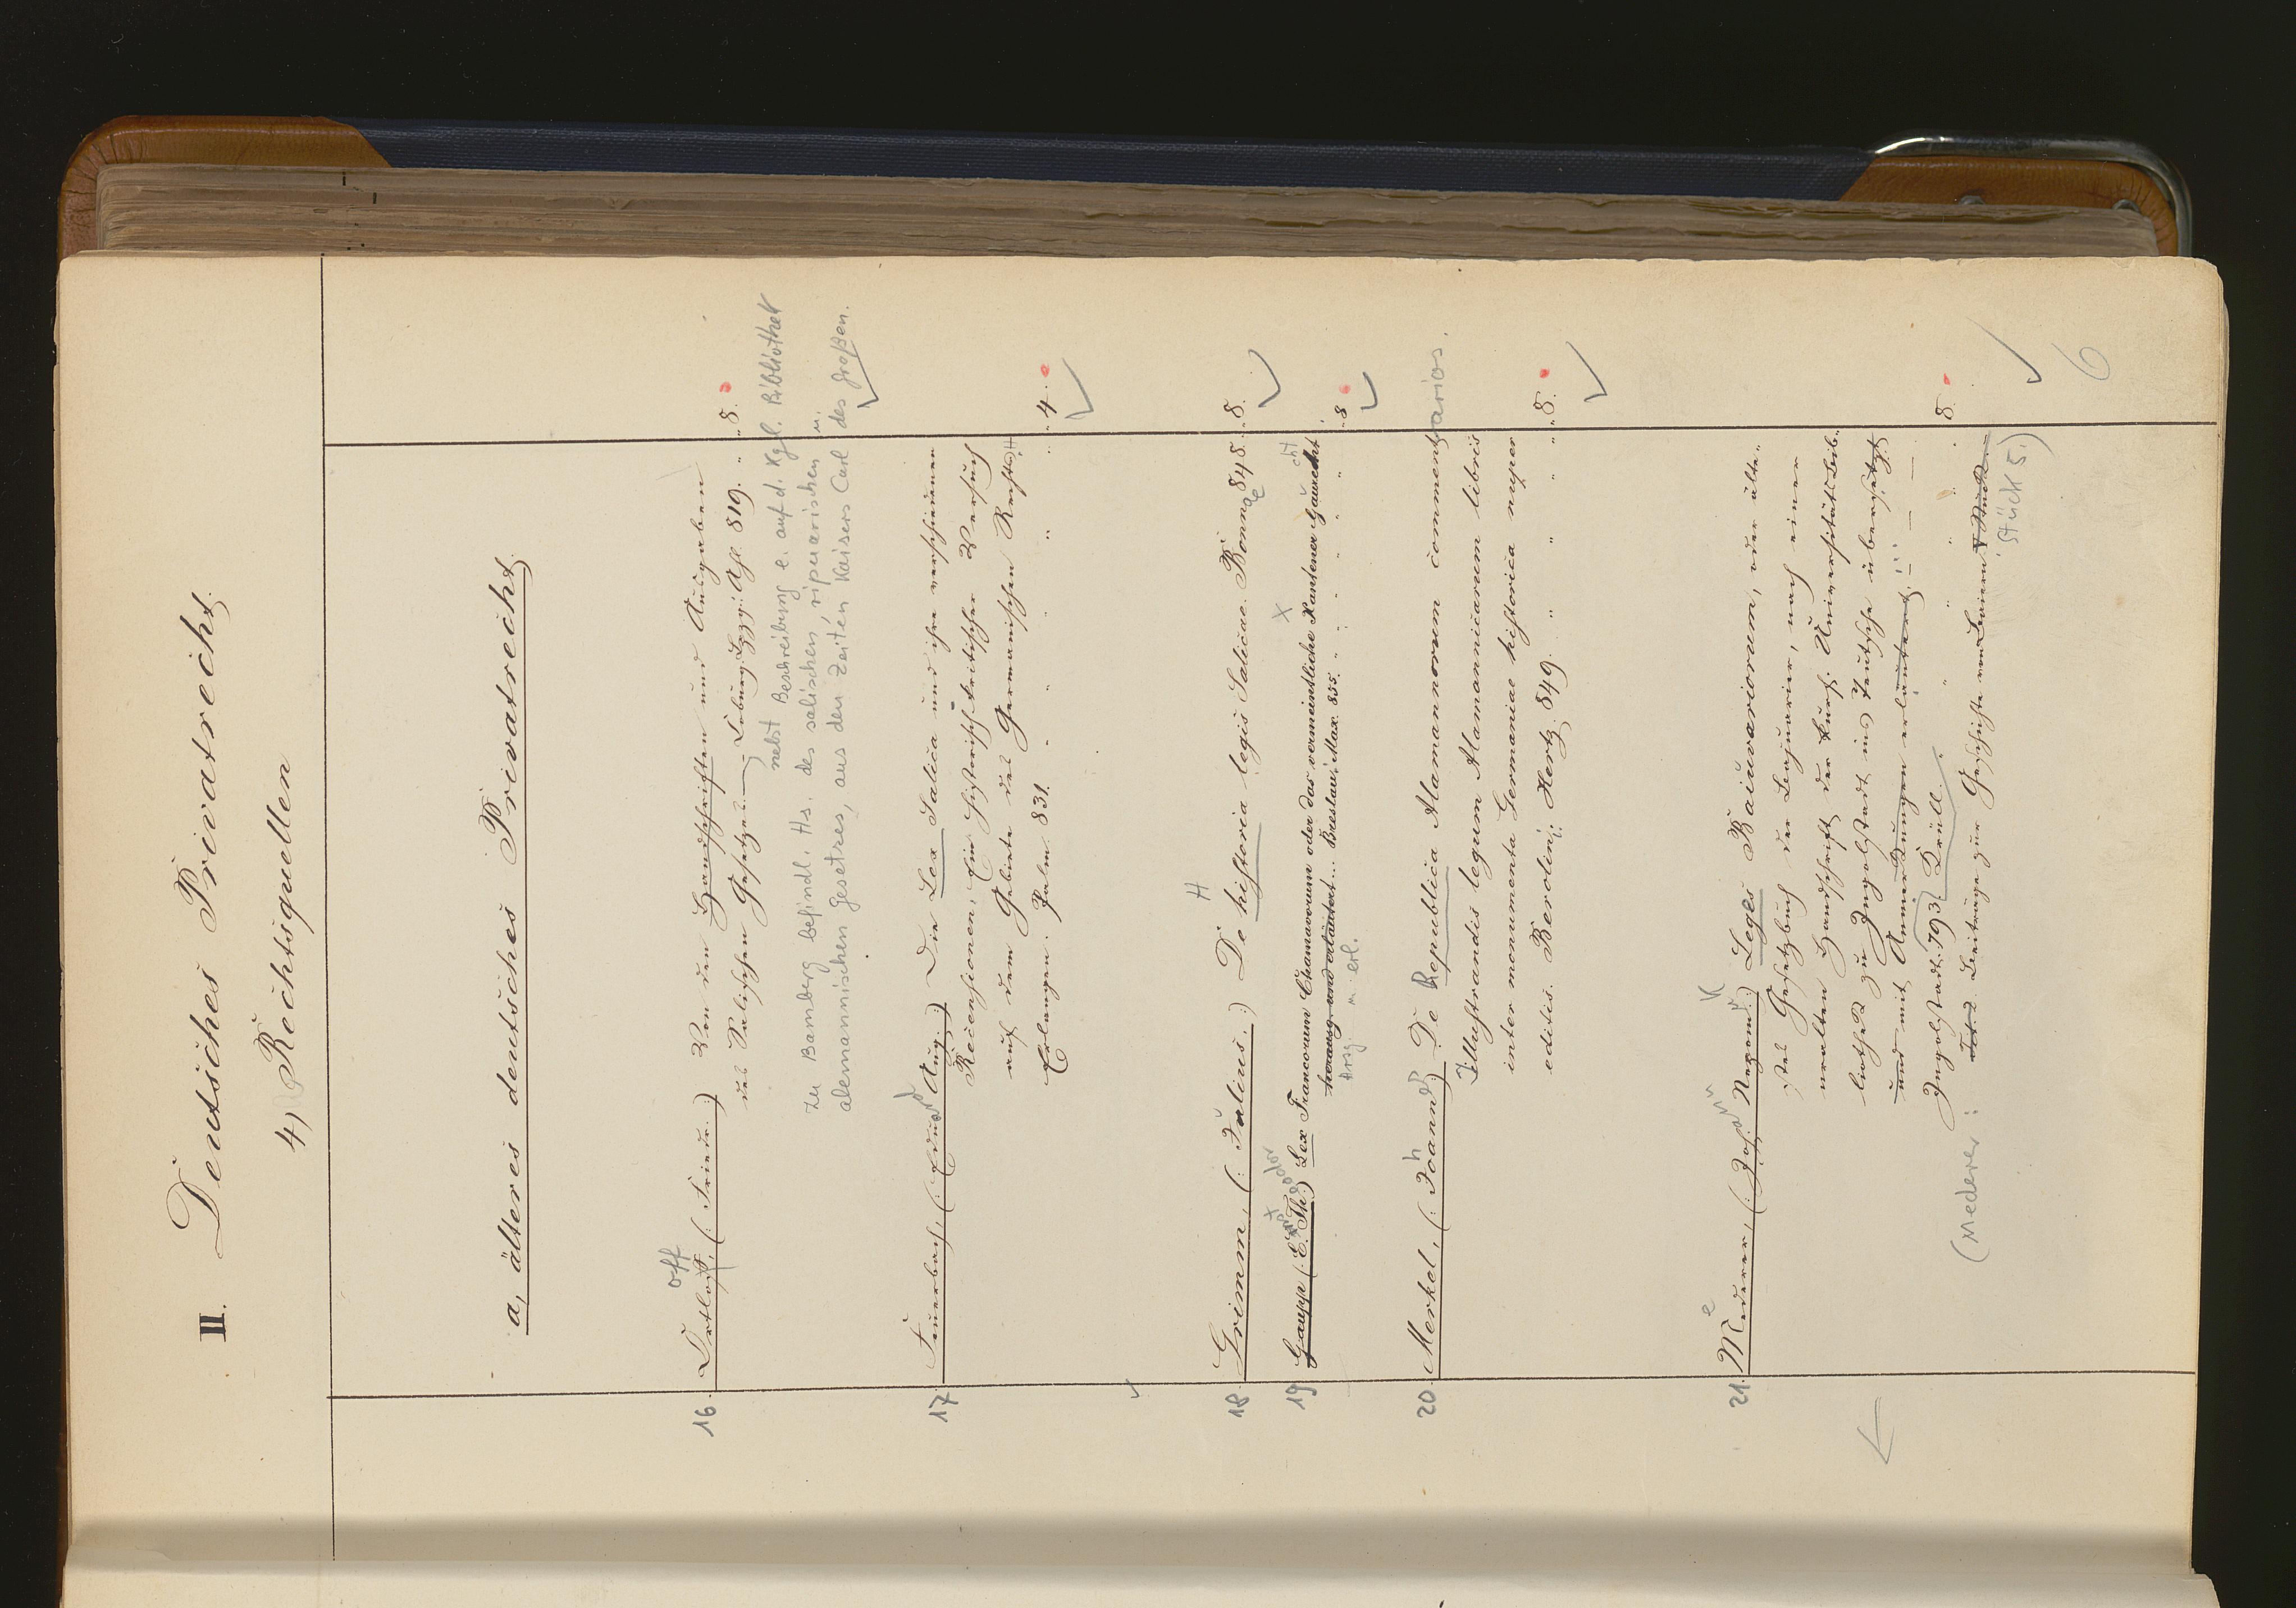 II. Deutsches Privatrecht.
4, Rechtsquellen
a, älteres deutsches Privatrecht.
16. Ortloff, (: Friedr. :) Von den Handschriften und Ausgaben
off
des Salischen Gesetzes. Coburg. Lzzg: Aß. 819. " 8.
nebst Beschreibung e. auf d. Kgl. Bibliothek
zu Bamberg befindl. Hs. des salischen, ripuarischen u.
alemannischen Gesetzes, aus den Zeiten Kaisers Carl des Großen.
17 Feuerbach, (: Eduard Aug. :) Die Lex Salica und ihre verschiedenen
Recensionen, Ein historisch-kritischer Versuch
aus dem Gebiete des Germanischen Rechts.
Erlangen. Palm. 831. " " " " " 4.
18 Grimm, (: Julius. :) De historia legis Salicae. Bonnae 848. " 8.
H
19 Gaupp (: E. Th. :) Lex Francorum Chamavorum oder das vermeintliche Xantener Gaurecht
herausg und erläutert... Breslau, Max. 855. " " " " " " 8
Hrsg. u. erl.
20 Merkel, (: Johann :) De Republica Alamannorum commentarios.
Illustrandis legum Alamannicarum libris
inter monumenta Germaniae historica nuper
editis. Berolini. Hertz. 849. " " " " " 8.
21. Mederer, (: Joh. Nepomuk :) Leges Baiuvariorum, oder älte„
stes Gesetzbuch der Bajuarier, nach einer
uralten Handschrift der kurf. Universitätsbib„
liothek zu Ingolstadt ins Teutsche übersetzt
und mit Anmerkungen erläutert.
Ingolstadt. 793. Krüll. " " " 8.
(Mederer: Beiträge zur Geschichte von Baiern
Stück 5.)
6